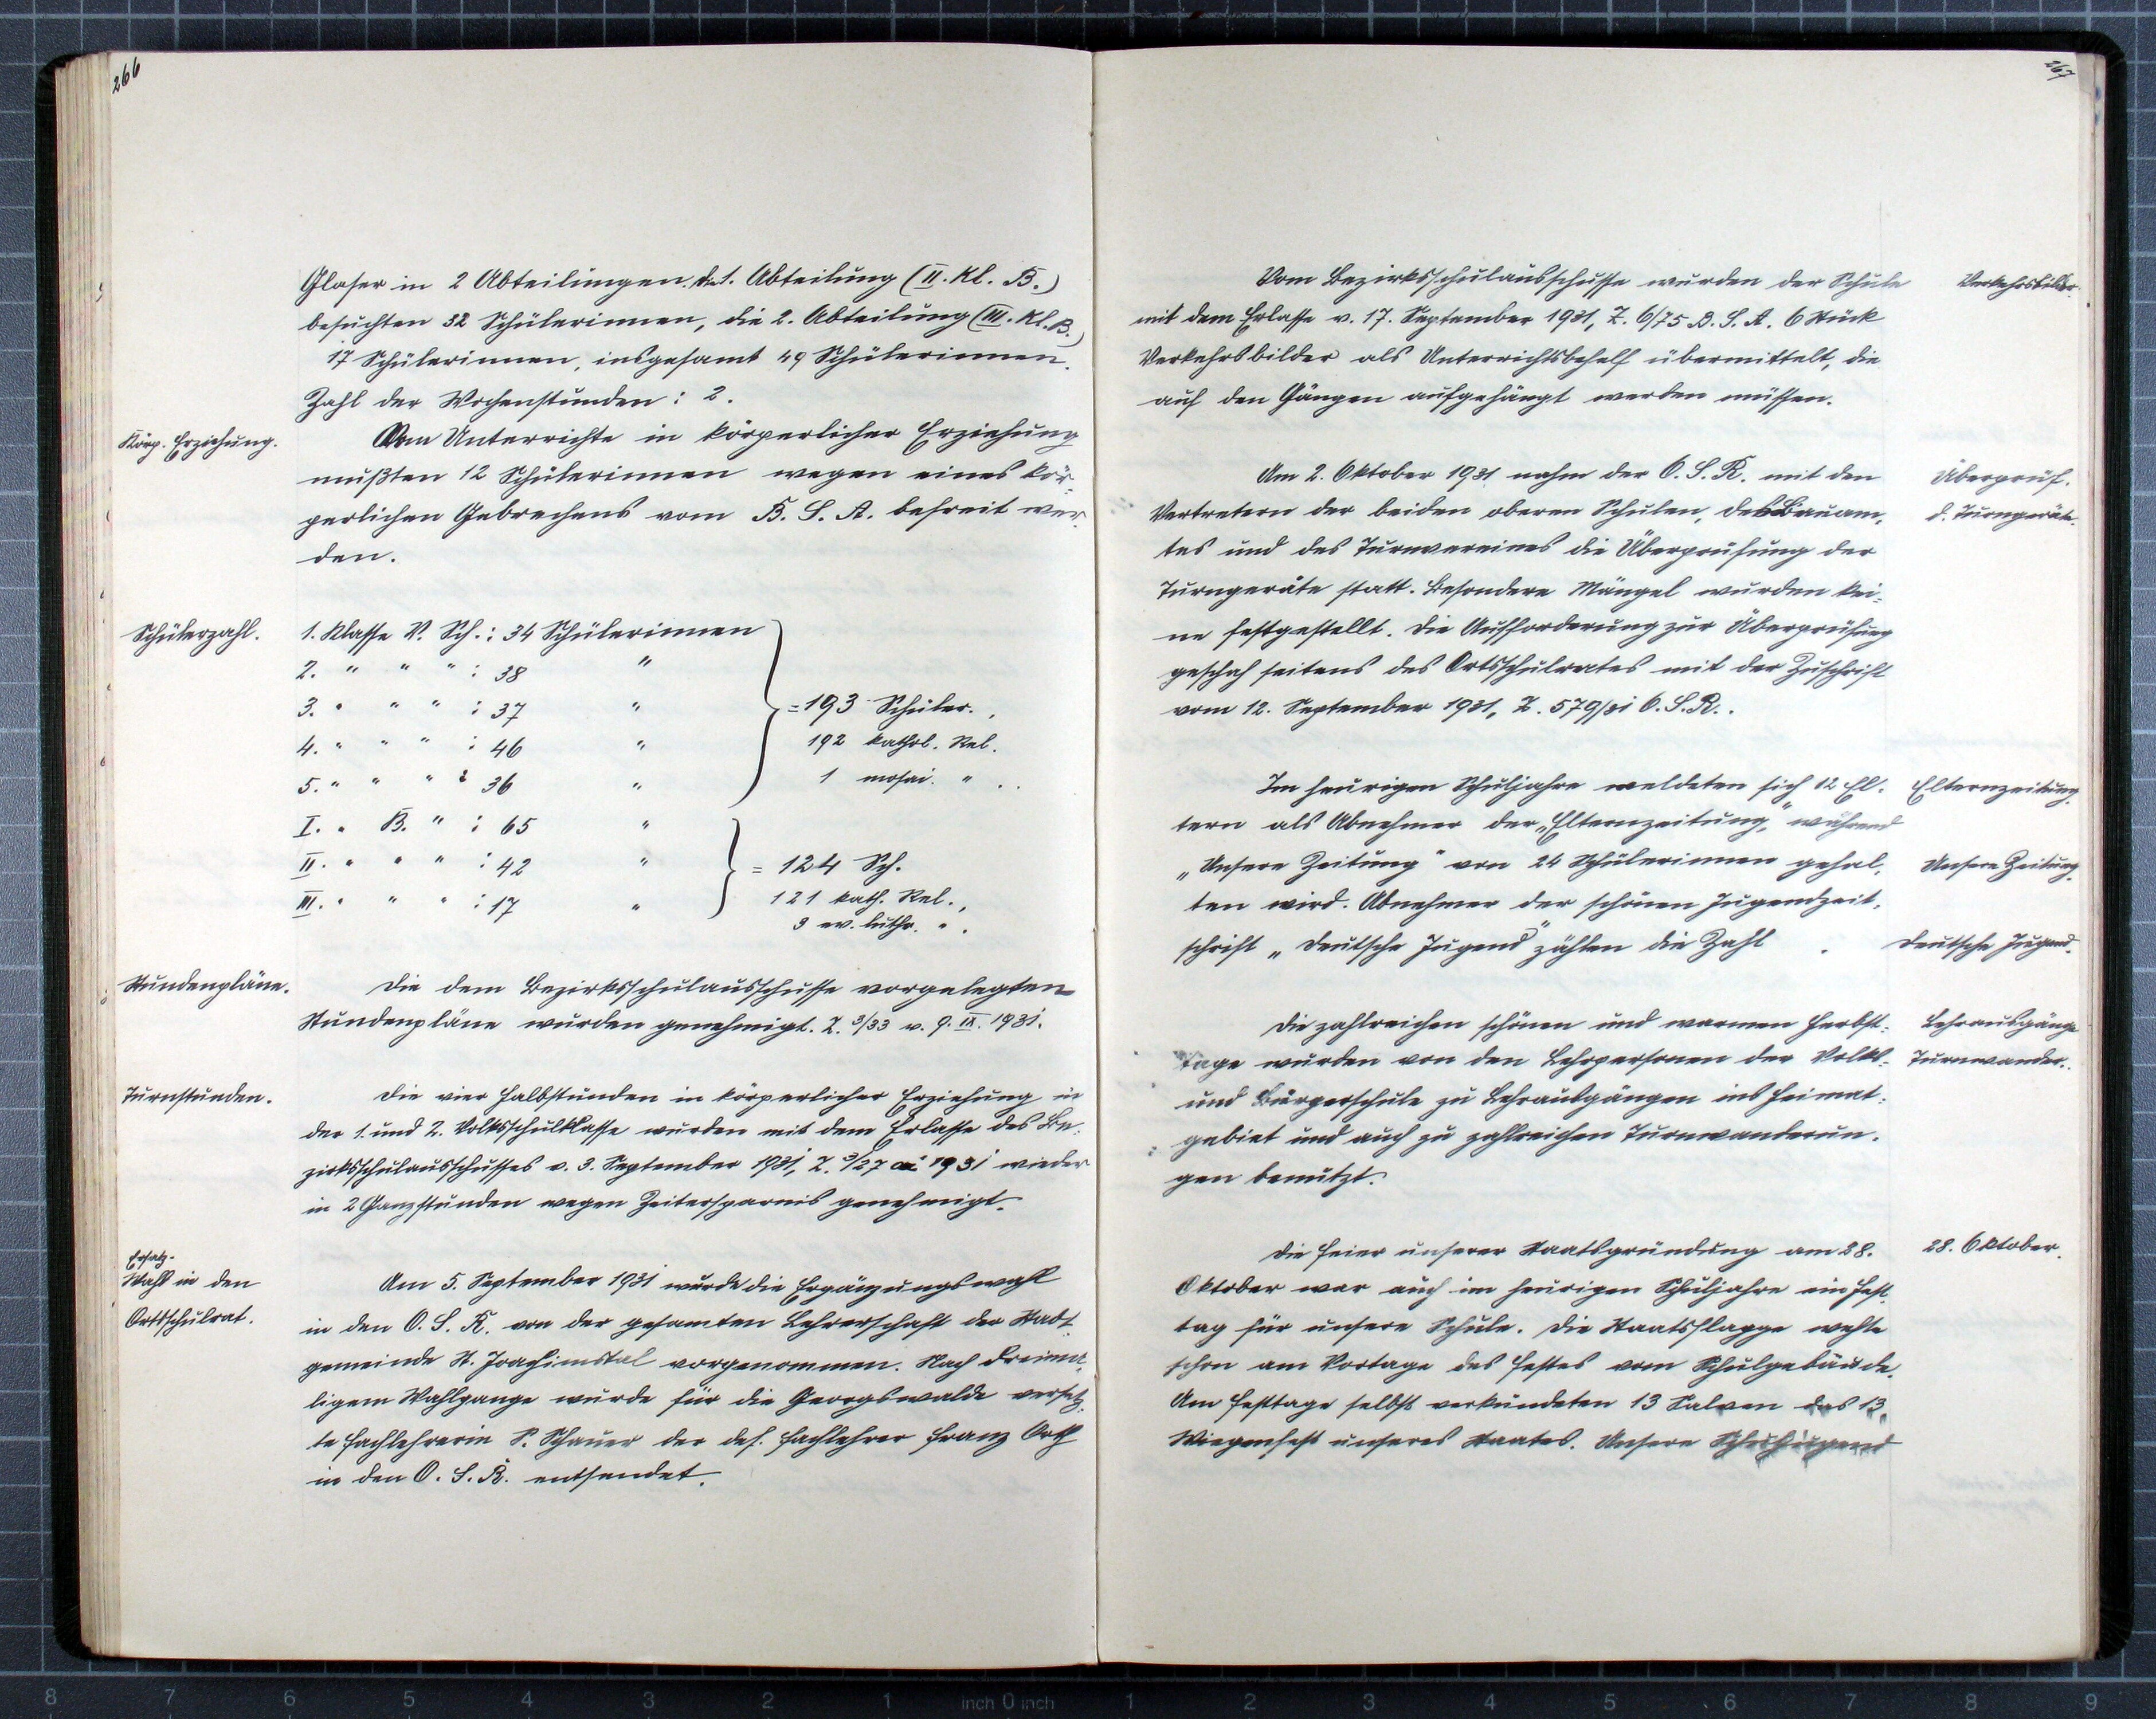 266
Glaser in 2 Abteilungen. Die 1. Abteilung (II. Kl. B.)
besuchten 32 Schülerinnen, die 2. Abteilung (III. Kl. B.)
17 Schülerinnen, insgesamt 49 Schülerinnen.
Zahl der Wochenstunden: 2.
Körp. Erziehung.
Vom Unterrichte in körperlicher Erziehung
mußten 12 Schülerinnen wegen eines kör-
perlichen Gebrechens vom B. S. A. befreit wer-
den.
Schülerzahl.
1. Klasse V. Sch.: 34 Schülerinnen
2. " " " : 38 "
3. " " " : 37 " = 193 Schüler.,
4. " " " : 46 " 192 kathol. Rel.
5. " " " : 36 " 1 mosai. " .
I. " B. " : 65 "
II. " " " : 42 " = 124 Sch.
III. " " " : 17 " 121 kath. Rel.,
3 ev. luthr. " .
Stundenpläne.
Die dem Bezirksschulausschusse vorgelegten
Stundenpläne wurden genehmigt. Z. 3/33 v. 9. IX. 1931.
Turnstunden.
Die vier Halbstunden in körperlicher Erziehung in
der 1. und 2. Volksschulklasse wurden mit dem Erlasse des Be-
zirksschulausschusses v. 3. September 1931, Z. 3/27 ai 1931 wieder
in 2 Ganzstunden wegen Zeitersparnis genehmigt.
Ersatz-
Wahl in den
Ortsschulrat.
Am 5. September 1931 wurde die Ergänzungswahl
in den O. S. R. von der gesamten Lehrerschaft der Stadt-
gemeinde St. Joachimstal vorgenommen. Nach dreima-
ligem Wahlgange wurde für die Georgswalde versetz-
te Fachlehrerin P. Schauer der def. Fachlehrer Franz Orth
in den O. S. R. entsendet.
267
Vom Bezirksschulausschusse wurden der Schule
mit dem Erlasse v. 17. September 1931, Z. 6/75 B. S. A. 6 Stück
Verkehrsbilder als Unterrichtsbehelf übermittelt, die
auf den Gängen aufgehängt werden müssen.
Verkehrsbilder.
Am 2. Oktober 1931 nahm der O. S. R. mit den
Vertretern der beiden oberen Schulen, des Bauam-
tes und des Turnvereines die Überprüfung der
Turngeräte statt. Besondere Mängel wurden kei-
ne festgestellt. Die Aufforderung zur Überprüfung
geschah seitens des Ortsschulrates mit der Zuschrift
vom 12. September 1931, Z. 579/31 O. S. R..
Überprüf.
d. Turngeräte.
Im heurigen Schuljahre meldeten sich 12 El-
tern als Abnehmer der „Elternzeitung," während
„Unsere Zeitung" von 24 Schülerinnen gehal-
ten wird. Abnehmer der schönen Jugendzeit-
schrift „Deutsche Jugend" zählen die Zahl .
Elternzeitung.
Unsere Zeitung.
Deutsche Jugend.
Die zahlreichen schönen und warmen Herbst-
tage wurden von den Lehrpersonen der Volks-
und Bürgerschule zu Lehrausgängen ins Heimat-
gebiet und auch zu zahlreichen Turnwanderun-
gen benützt.
Lehrausgänge
Turnwander..
Die Feier unserer Staatsgründung am 28.
Oktober war auch im heurigen Schuljahre ein Fest-
tag für unsere Schule. Die Staatsflagge wehte
schon am Vortage des Festes vom Schulgebäude.
Am Festtage selbst verkündeten 13 Salven das 13.
Wiegenfest unseres Staates. Unsere Schuljugend
28. Oktober.
8 7 6 5 4 3 2 1 inch 0 inch 1 2 3 4 5 6 7 8 9